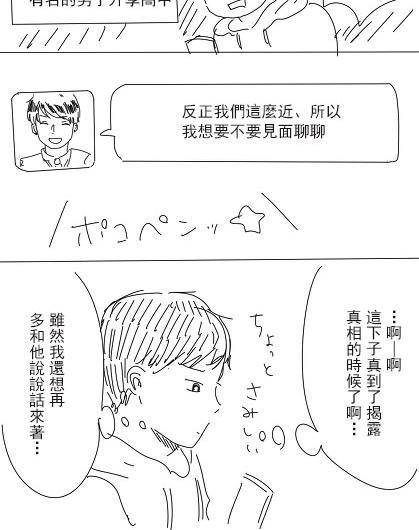 有名的男子升學高中
反正我們這麼近、所以
我想要不要見面聊聊
ポコペンッ☆
…啊—啊
這下子真到了揭露
真相的時候了啊…
ちょっと
さみしい
雖然我還想再
多和他說說話來著…